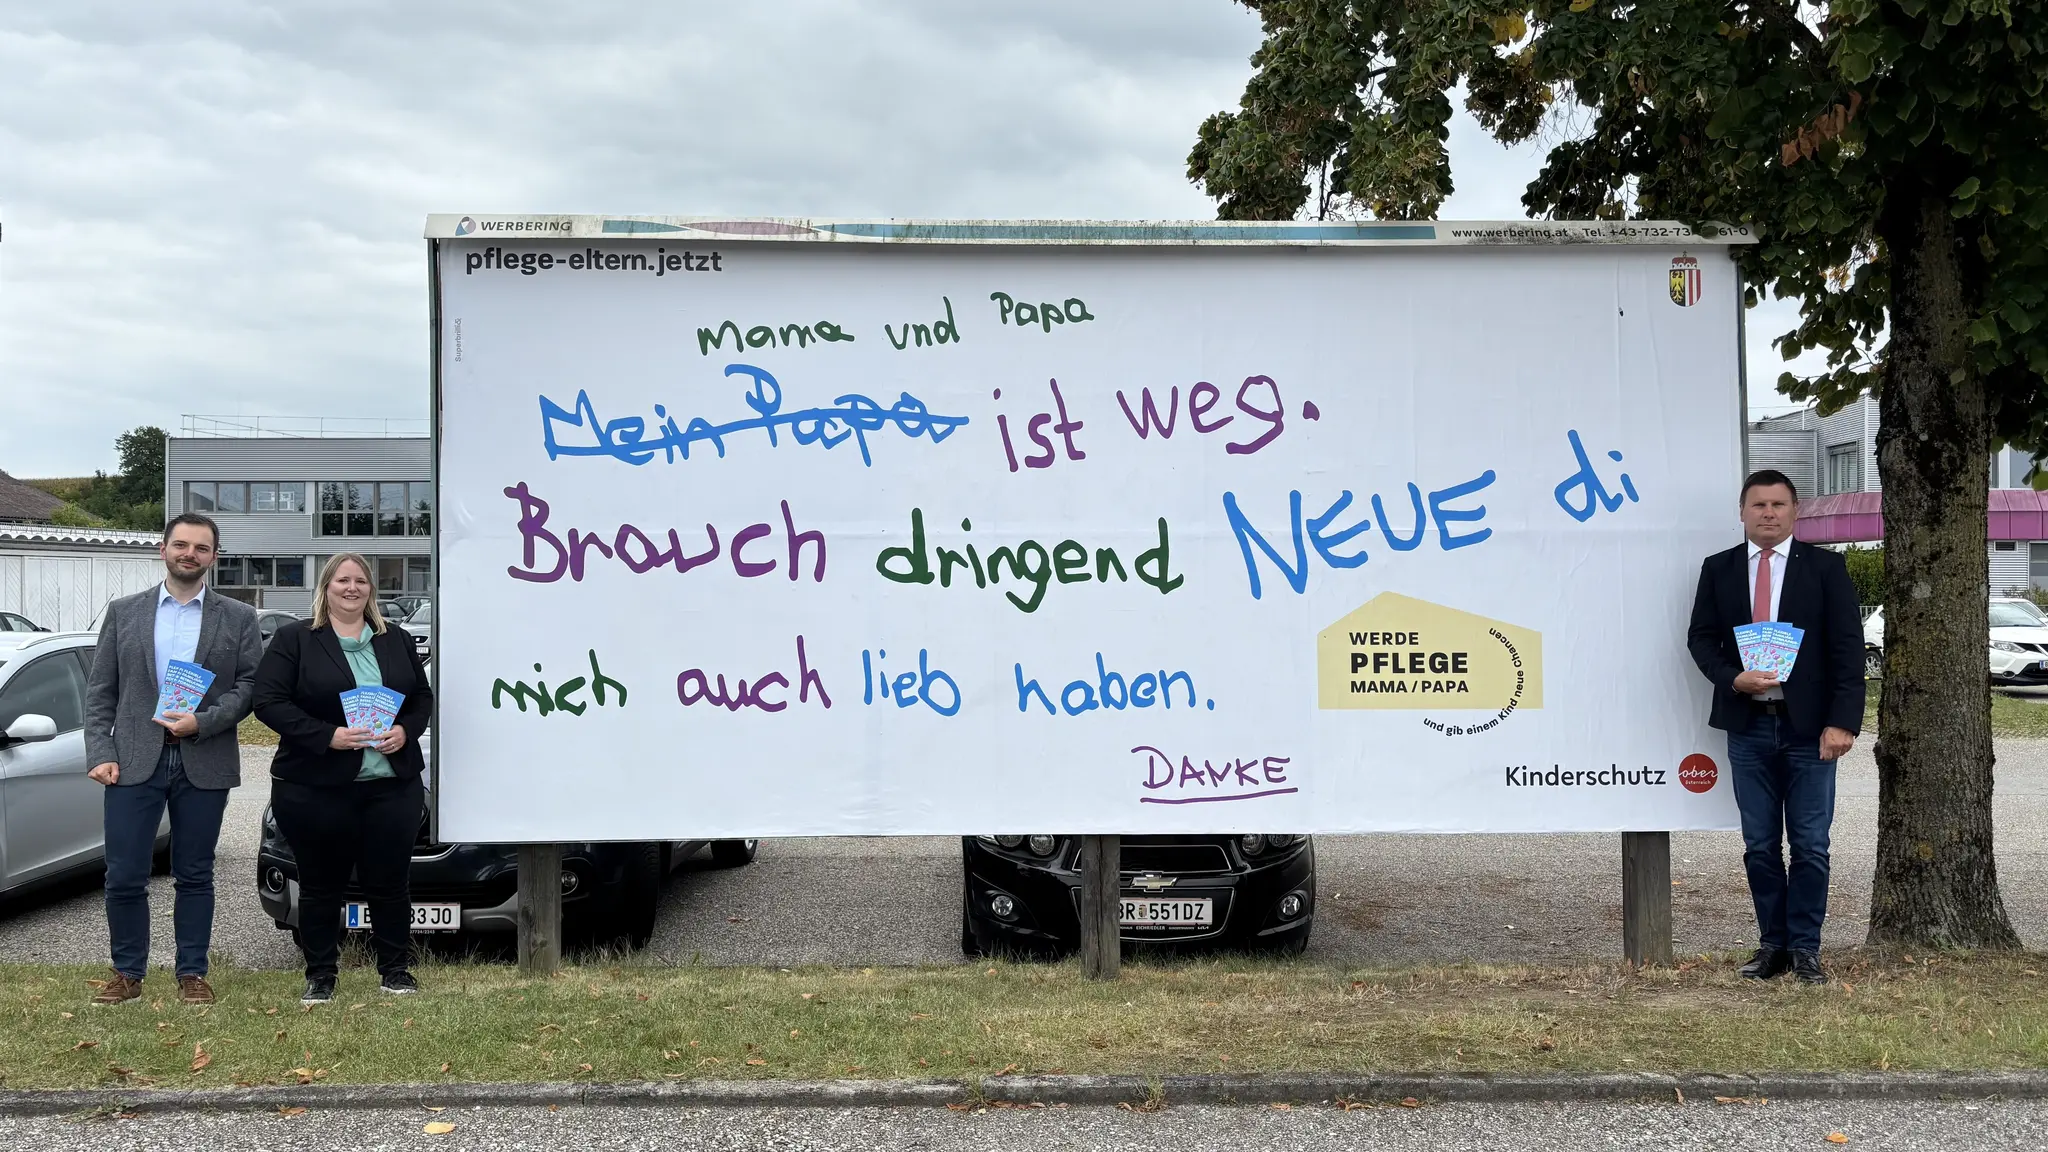 WERBERING
www.werbering.at Tel. +43-732-73 61-0
pflege-eltern.jetzt
Superbrillig
Mama und Papa
Mein Papa ist weg.
Brauch dringend NEUE di
mich auch lieb haben.
DANKE
WERDE
PFLEGE
MAMA / PAPA
und gib einem Kind neue Chancen
Kinderschutz ober
österreich
33 JO
BR 551 DZ